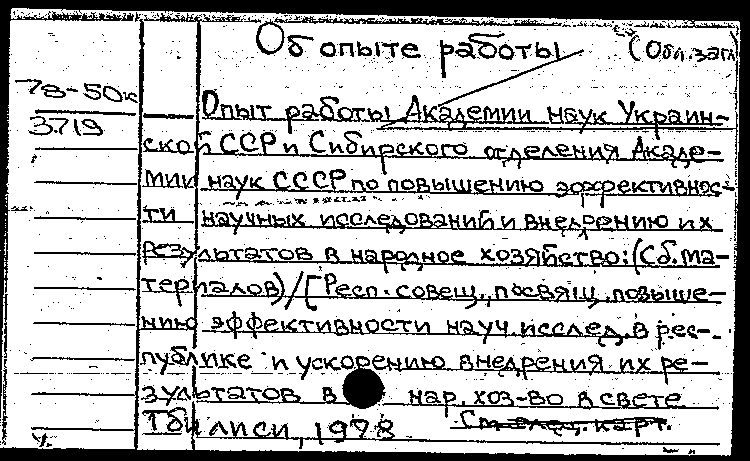 Об опыте работы (Обл.загл
78-50к
3719
Опыт работы Академии наук Украин-
ской ССР и Сибирского отделения Акаде-
мии наук СССР по повышению эффективнос-
ти научных исследований и внедрению их
результатов в народное хозяйство: (Сб. ма-
териалов) / [Респ. совещ., посвящ. повыше-
нию эффективности науч. исслед. в рес-
публике и ускорению внедрения их ре-
зультатов в нар. хоз-во в свете
Тбилиси, 1978 См. след. карт.